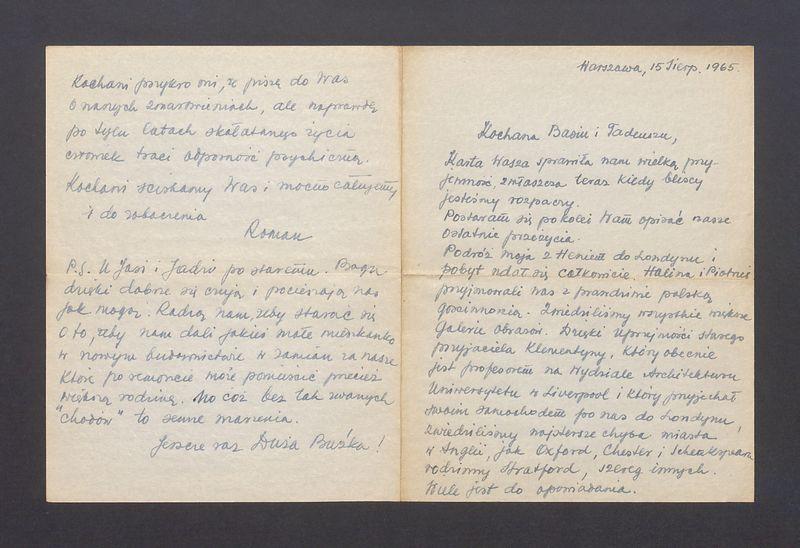 Warszawa, 15 Sierp. 1965.
Kochana Basiu i Tadeuszu,
Karta Wasza sprawiła nam wielką przy-
jemność zwłaszcza teraz kiedy bliscy
jesteśmy rozpaczy.
Postaram się po kolei Wam opisać nasze
ostatnie przeżycia.
Podróż moja z Heniem do Londynu i
pobyt udał się całkowicie. Halina i Piotruś
przyjmowali nas z prawdziwie polską
gościnnością. Zwiedziliśmy wszystkie większe
Galerie obrazów. Dzięki uprzejmości starego
przyjaciela Klementyny, który obecnie
jest profesorem na Wydziale Architektury
Uniwersytetu w Liverpool i który przyjechał
swoim samochodem po nas do Londynu,
zwiedziliśmy najstarsze chyba miasta
w Anglii, jak Oxford, Chester i
rodzinny Stratford, szereg innych.
Wiele jest do opowiadania.
Kochani przykro mi, że piszę do Was
o naszych zmartwieniach, ale naprawdę
po tylu latach skołatanego życia
człowiek traci odporność psychiczną.
Kochani ściskamy Was i mocno całujemy
i do zobaczenia
Roman
P.S. U Jasi i Jadzi po staremu. Bogu
dzięki dobrze się czują i pocieszają nas
jak mogą. Radzą nam, żeby starać się
o to, żeby nam dali jakieś małe mieszkanko
w nowym budownictwie w zamian za nasze
które po remoncie może pomieścić przecież
większą rodzinę. No cóż bez tak zwanych
"chodów" to senne marzenia.
Jeszcze raz Duża Buźka!